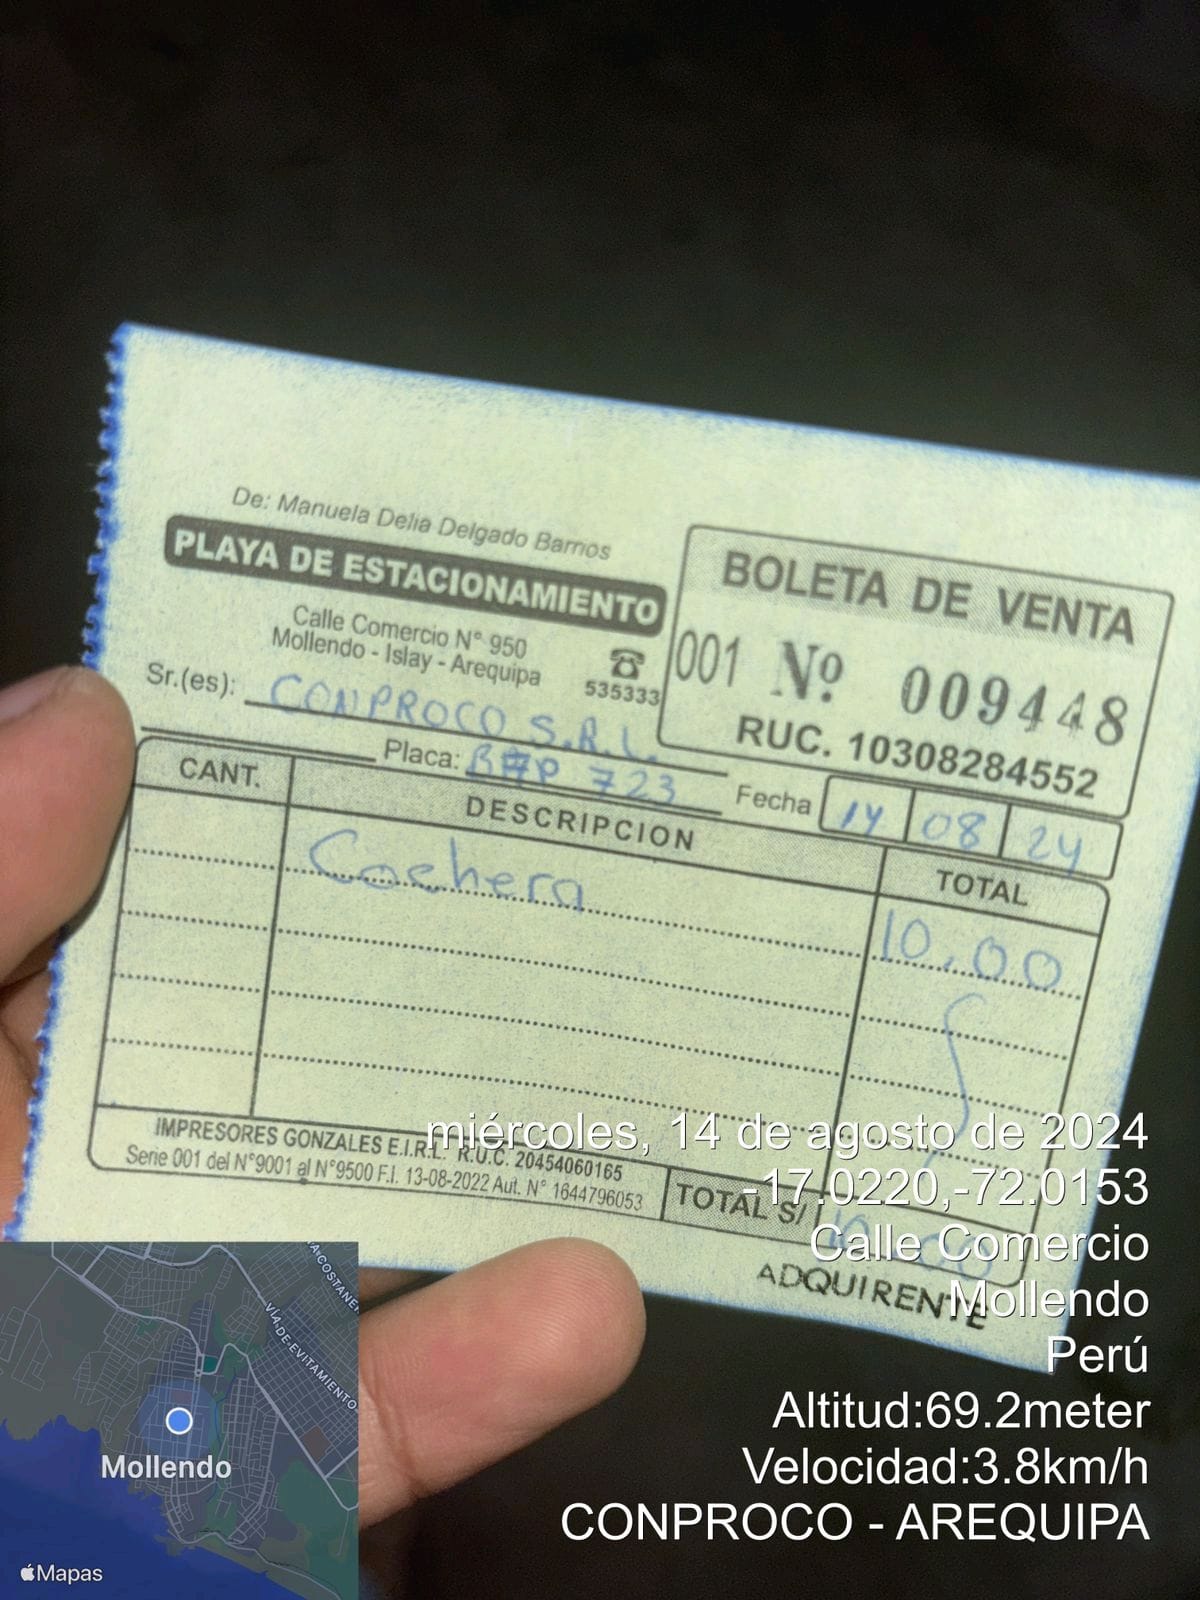 De: Manuela Delia Delgado Barrios
PLAYA DE ESTACIONAMIENTO
Calle Comercio N° 950
Mollendo - Islay - Arequipa
535333
BOLETA DE VENTA
001 Nº 009448
RUC. 10308284552
Sr.(es): CONPROCO S.R.L.
Placa: 723
Fecha 14 08 24
CANT. DESCRIPCION TOTAL
Cochera 10.00
IMPRESORES GONZALES E.I.R.L. R.U.C. 20454060165
Serie 001 del N°9001 al N°9500 F.I. 13-08-2022 Aut. N° 1644796053
TOTAL S/
ADQUIRENTE
miércoles, 14 de agosto de 2024
-17.0220,-72.0153
Calle Comercio
Mollendo
Perú
Altitud:69.2meter
Velocidad:3.8km/h
CONPROCO - AREQUIPA
VÍA COSTANE
VÍA DE EVITAMIENTO
Mollendo
Mapas